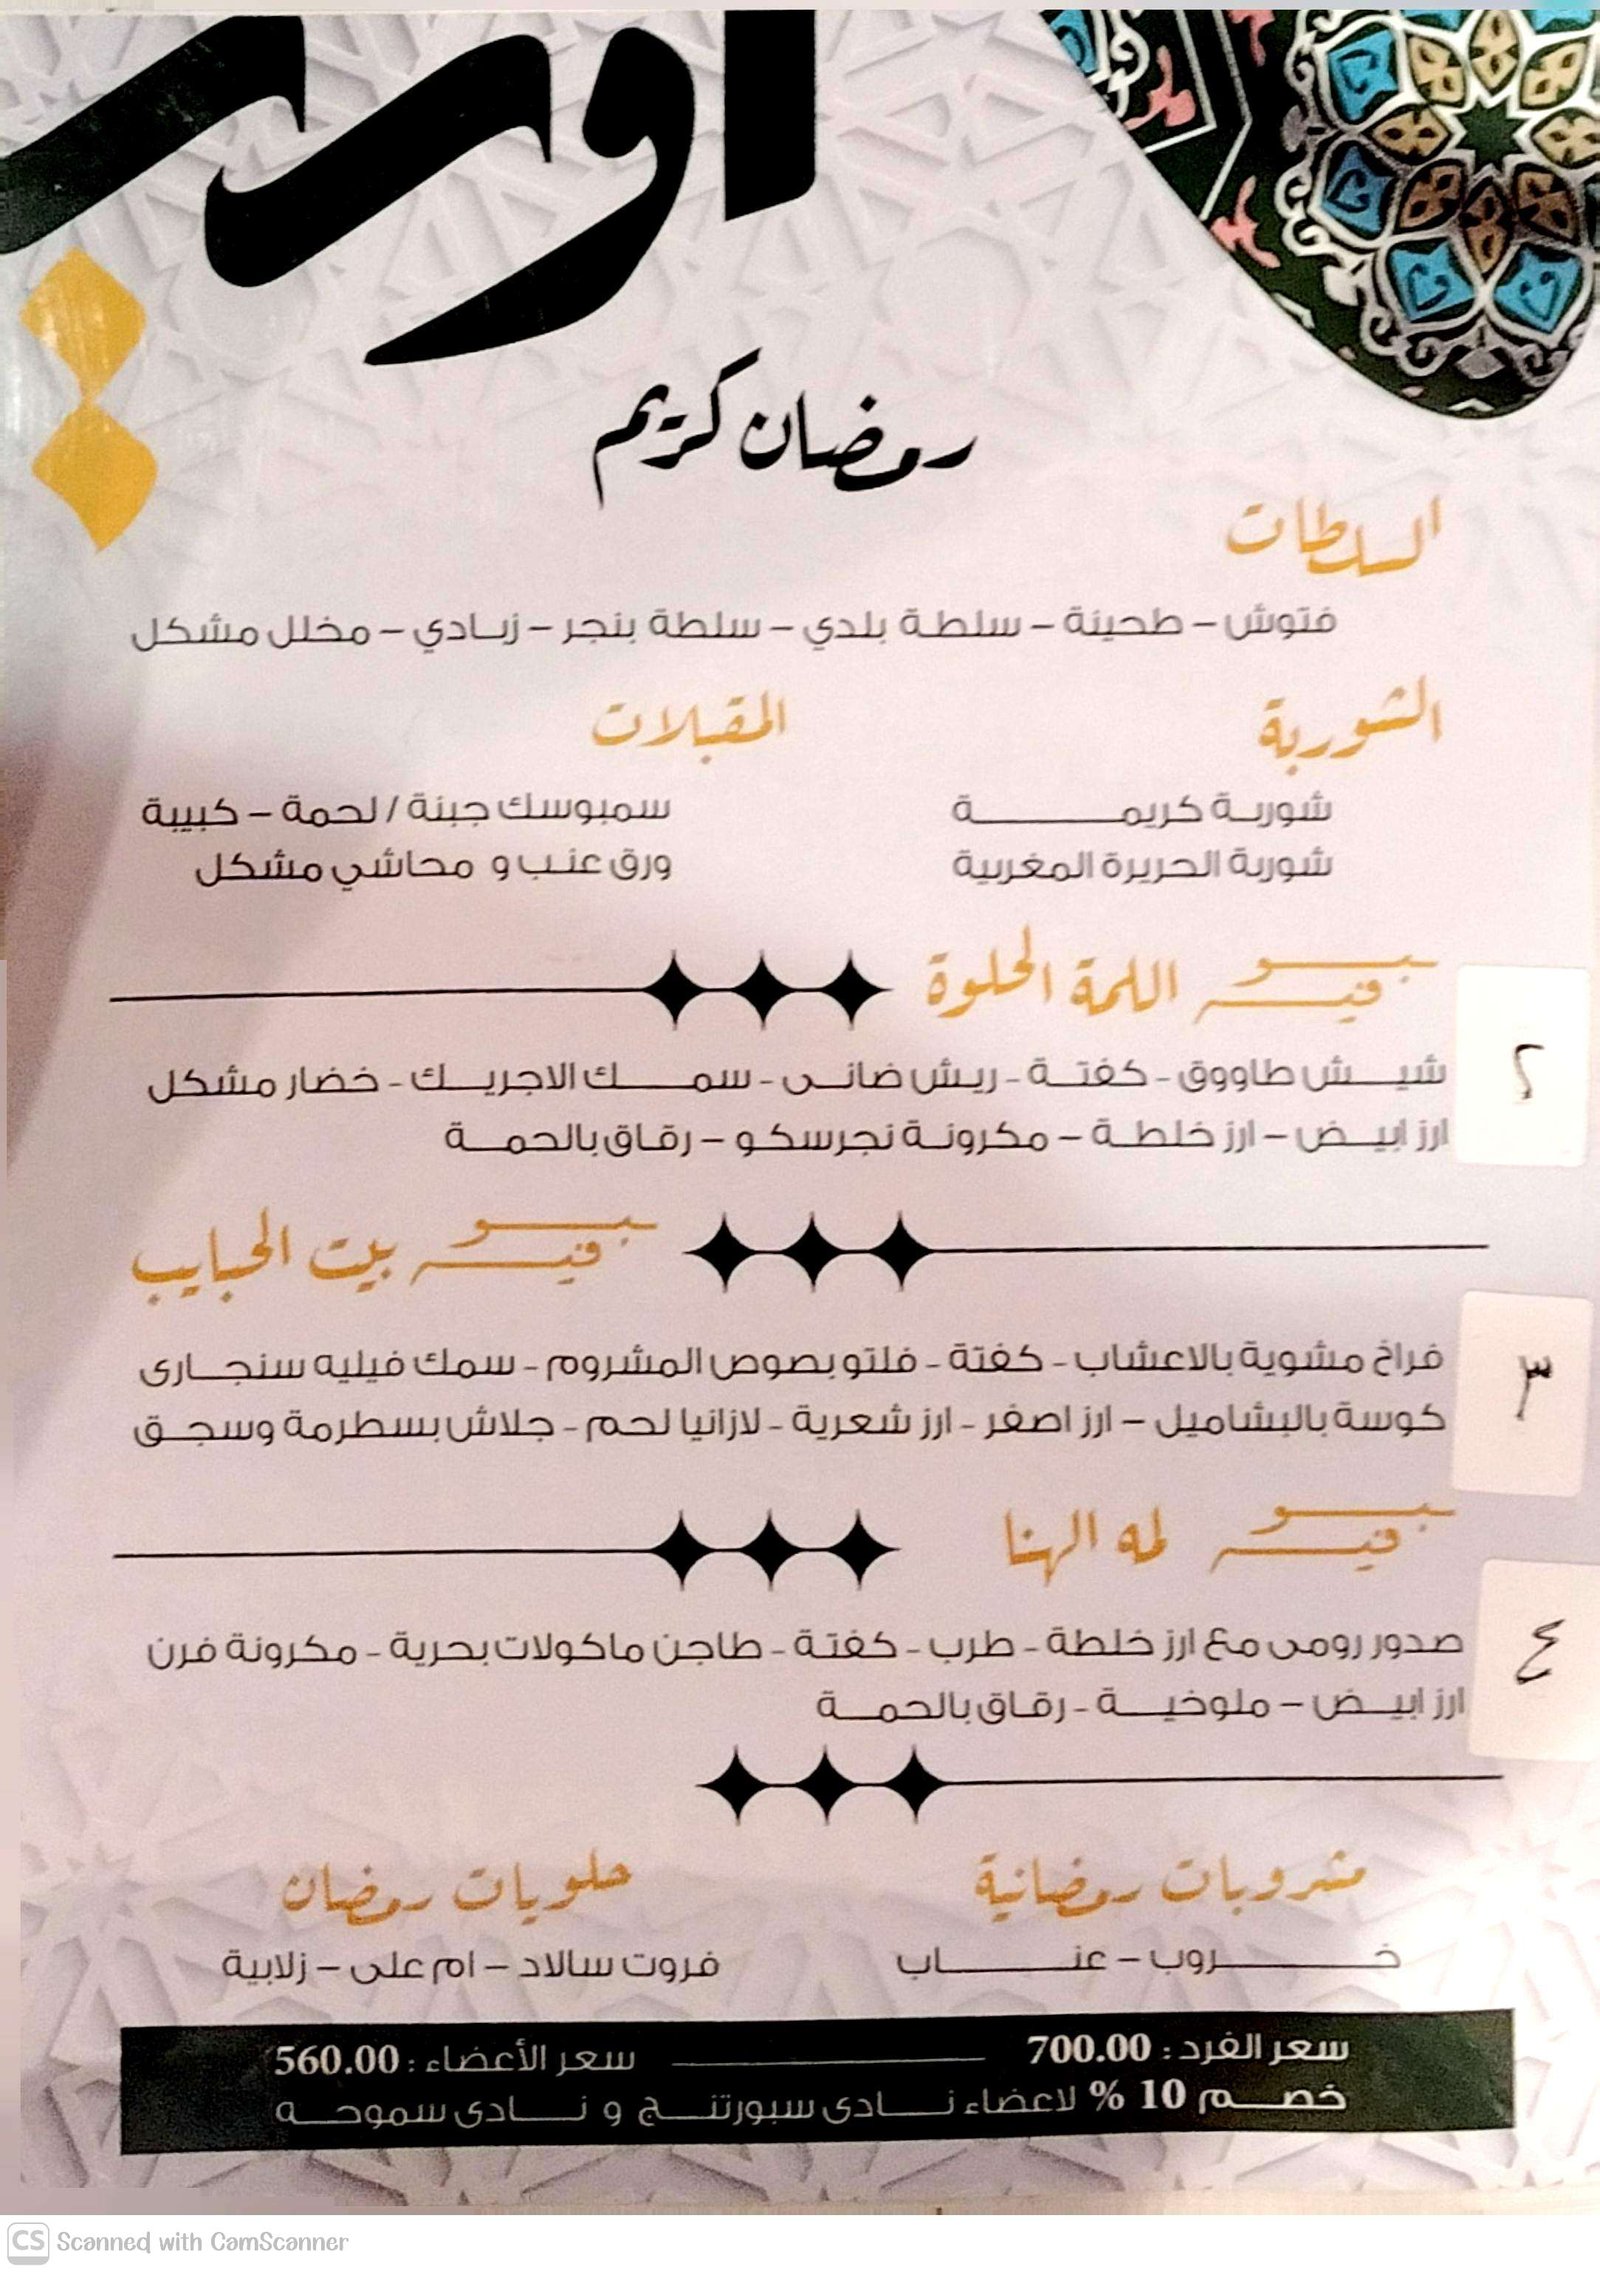 رمضان كريم
السلطات
فتوش – طحينة – سلطة بلدي – سلطة بنجر – زبادي – مخلل مشكل
الشوربة
شوربة كريمة
شوربة الحريرة المغربية
المقبلات
سمبوسك جبنة / لحمة – كبيبة
ورق عنب و محاشي مشكل
بوفيه اللمة الحلوة
٢
شيش طاووق - كفتة - ريش ضانى - سمك الاجريك - خضار مشكل
ارز ابيض – ارز خلطة – مكرونة نجرسكو – رقاق بالحمة
بوفيه بيت الحبايب
٣
فراخ مشوية بالاعشاب - كفتة - فلتو بصوص المشروم - سمك فيليه سنجارى
كوسة بالبشاميل – ارز اصفر - ارز شعرية - لازانيا لحم - جلاش بسطرمة وسجق
بوفيه لمه الهنا
٤
صدور رومى مع ارز خلطة - طرب - كفتة - طاجن ماكولات بحرية - مكرونة فرن
ارز ابيض – ملوخية - رقاق بالحمة
مشروبات رمضانية
خروب – عناب
حلويات رمضان
فروت سالاد – ام على – زلابية
سعر الفرد : 700.00 سعر الأعضاء : 560.00
خصم 10 % لاعضاء نادى سبورتنج و نادى سموحه
CS Scanned with CamScanner